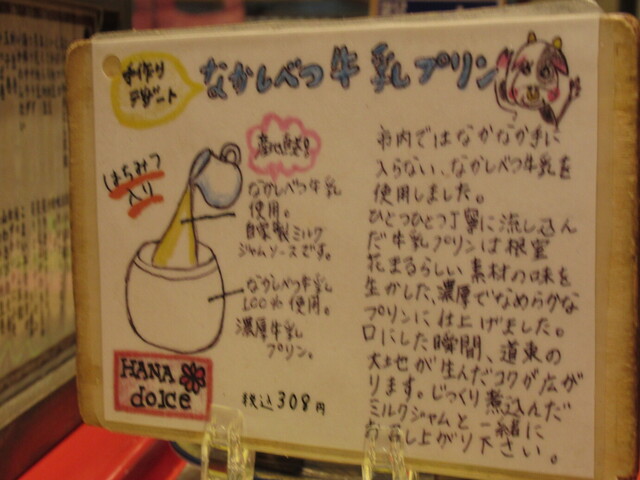 手作り
デザート
なかしべつ牛乳プリン
はちみつ
入り
産地直送!
なかしべつ牛乳
使用。
自家製ミルク
ジャムソースです。
なかしべつ牛乳
100%使用。
濃厚牛乳
プリン。
HANA
dolce
税込308円
市内ではなかなか手に
入らない、なかしべつ牛乳を
使用しました。
ひとつひとつ丁寧に流し込ん
だ牛乳プリンは根室
花まるらしい素材の味を
生かした、濃厚でなめらかな
プリンに仕上げました。
口にした瞬間、道東の
大地が生んだコクが広が
ります。じっくり煮込んだ
ミルクジャムと一緒に
お召し上がり下さい。